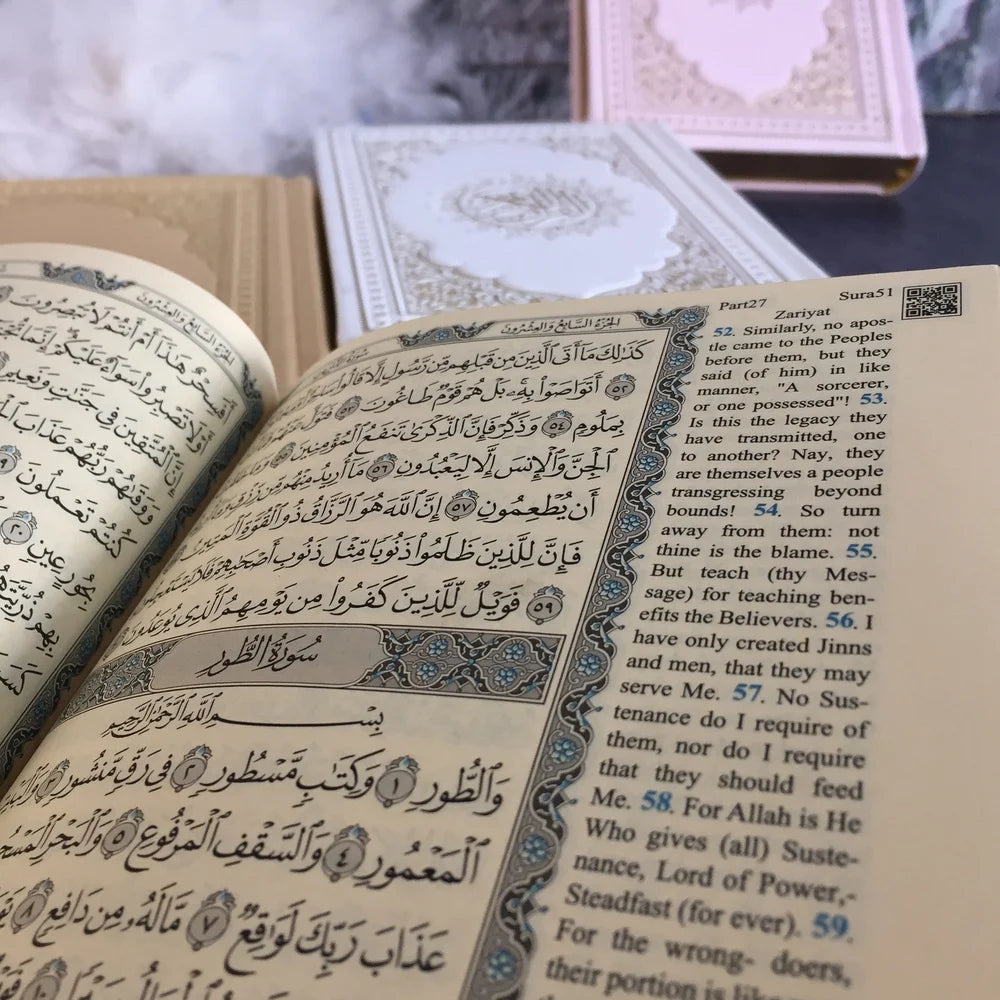 Part27
Sura51
Zariyat
الجزء السابع والعشرون
كَذَٰلِكَ مَآ أَتَى ٱلَّذِينَ مِن قَبۡلِهِم مِّن رَّسُولٍ إِلَّا قَالُواْ
٥٢ أَتَوَاصَوۡاْ بِهِۦۚ بَلۡ هُمۡ قَوۡمٞ طَاغُونَ ٥٣ فَتَوَلَّ عَنۡهُمۡ
بِمَلُومٖ ٥٤ وَذَكِّرۡ فَإِنَّ ٱلذِّكۡرَىٰ تَنفَعُ ٱلۡمُؤۡمِنِينَ ٥٥ وَمَا خَلَقۡتُ
ٱلۡجِنَّ وَٱلۡإِنسَ إِلَّا لِيَعۡبُدُونِ ٥٦ مَآ أُرِيدُ مِنۡهُم مِّن رِّزۡقٖ وَمَآ
أَن يُطۡعِمُونِ ٥٧ إِنَّ ٱللَّهَ هُوَ ٱلرَّزَّاقُ ذُو ٱلۡقُوَّةِ ٱلۡمَتِينُ
فَإِنَّ لِلَّذِينَ ظَلَمُواْ ذَنُوبٗا مِّثۡلَ ذَنُوبِ أَصۡحَٰبِهِمۡ فَلَا يَسۡتَعۡجِلُونِ
٥٩ فَوَيۡلٞ لِّلَّذِينَ كَفَرُواْ مِن يَوۡمِهِمُ ٱلَّذِي يُوعَدُونَ
سُورَةُ الطُّورِ
بِسۡمِ ٱللَّهِ ٱلرَّحۡمَٰنِ ٱلرَّحِيمِ
وَٱلطُّورِ ١ وَكِتَٰبٖ مَّسۡطُورٖ ٢ فِي رَقّٖ مَّنشُورٖ ٣
ٱلۡمَعۡمُورِ ٤ وَٱلسَّقۡفِ ٱلۡمَرۡفُوعِ ٥ وَٱلۡبَحۡرِ
عَذَابَ رَبِّكَ لَوَٰقِعٞ ٧ مَّا لَهُۥ مِن دَافِعٖ ٨
52. Similarly, no apos-
tle came to the Peoples
before them, but they
said (of him) in like
manner, "A sorcerer,
or one possessed"! 53.
Is this the legacy they
have transmitted, one
to another? Nay, they
are themselves a people
transgressing beyond
bounds! 54. So turn
away from them: not
thine is the blame. 55.
But teach (thy Mes-
sage) for teaching ben-
efits the Believers. 56. I
have only created Jinns
and men, that they may
serve Me. 57. No Sus-
tenance do I require of
them, nor do I require
that they should feed
Me. 58. For Allah is He
Who gives (all) Suste-
nance, Lord of Power,-
Steadfast (for ever). 59.
For the wrong- doers,
their portion is like
الجزء السابع والعشرون
أَفَسِحۡرٌ هَٰذَآ أَمۡ أَنتُمۡ لَا تُبۡصِرُونَ
أَوۡ لَا تَصۡبِرُواْ سَوَآءٌ عَلَيۡكُمۡۖ إِنَّمَا
إِنَّ ٱلۡمُتَّقِينَ فِي جَنَّٰتٖ وَنَعِيمٖ
وَوَقَىٰهُمۡ رَبُّهُمۡ عَذَابَ
كُنتُمۡ تَعۡمَلُونَ ١٩
بِحُورٍ عِينٖ ٢٠